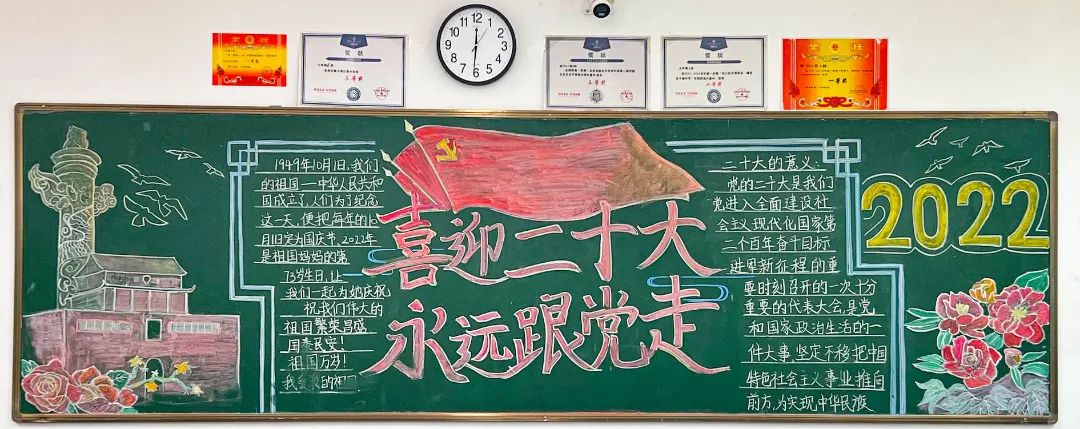 奖状
一等奖
奖状
三等奖
12
1
2
3
4
5
6
7
8
9
10
11
奖状
三等奖
奖状
二等奖
奖状
一等奖
1949年10月1日,我们
的祖国一中华人民共和
国成立了,人们为了纪念
这一天,便把每年的10
月1日定为国庆节.2022年
是祖国妈妈的第
73岁生日,让
我们一起为她庆祝
祝我们伟大的
祖国繁荣昌盛
国泰民安!
祖国万岁!
我 的祖
喜迎二十大
永远跟党走
二十大的意义:
党的二十大是我们
党进入全面建设社
会主义现代化国家第
二个百年奋斗目标
进军新征程的重
要时刻召开的一次十分
重要的代表大会,是党
和国家政治生活的一
件大事.坚定不移把中国
特色社会主义事业推向
前方,为实现中华民族
2022